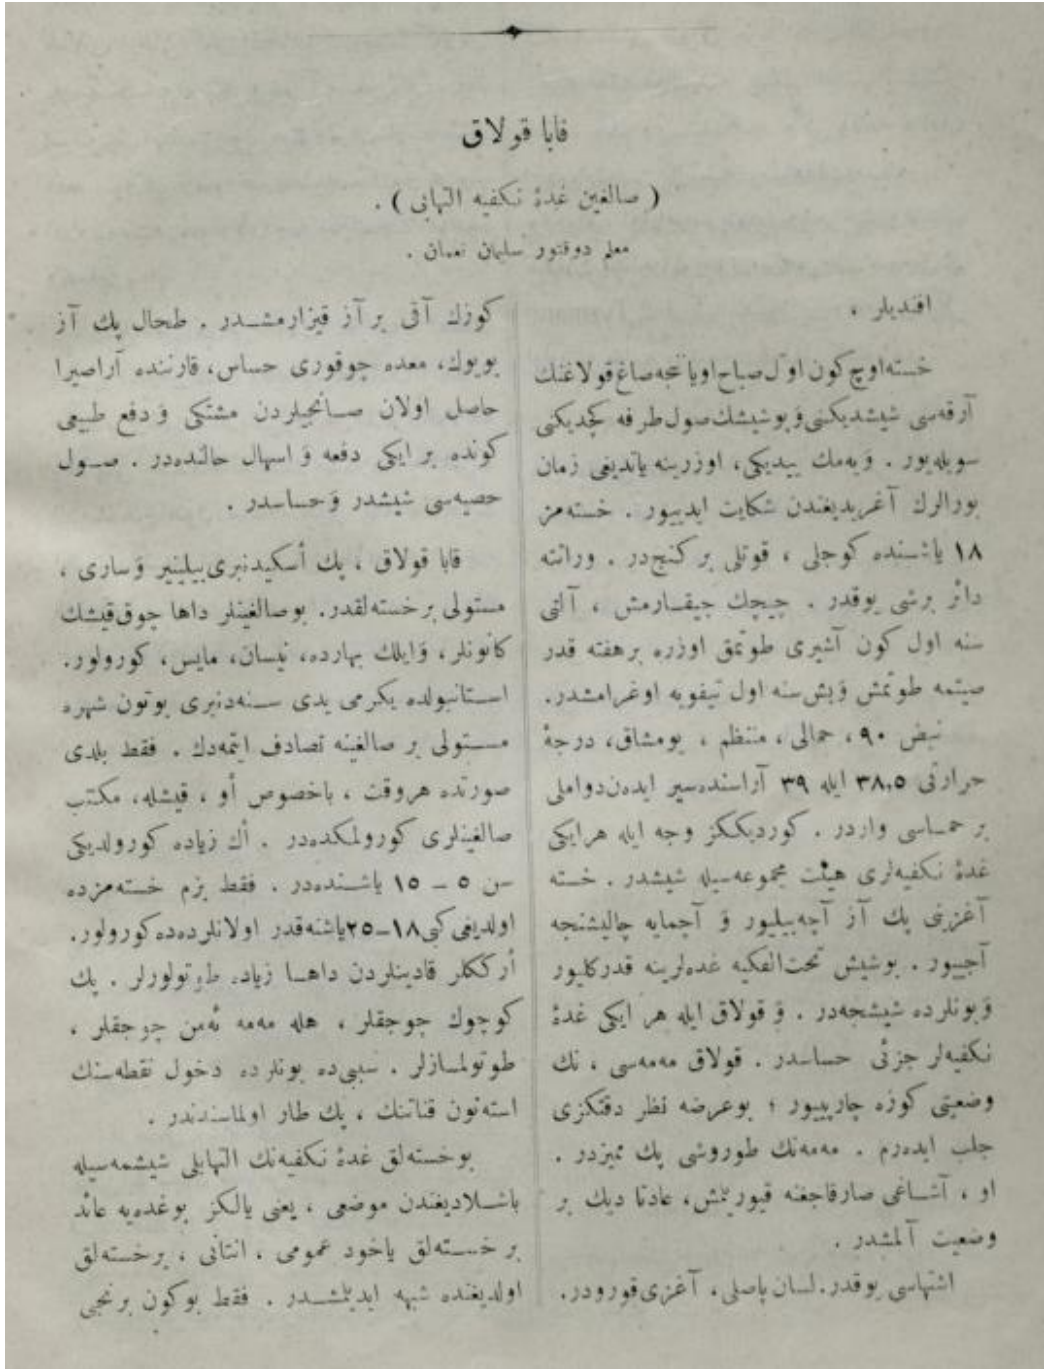 قابا قولاق
( صالغین غدهٔ نكفیه التهابی ) .
معلم دوقتور سلیمان نعمان .
افندیلر ،
خسته اوچ كون اول صباح اویانجه صاغ قولاغنك
آرقه‌سی شیشدیكنی و بو شیشك صول طرفه كچدیكنی
سویله‌یور . و یه‌مك ییدیكی، اوزرینه یاتدیغی زمان
بورالرك آغریدیغندن شكایت ایدییور . خسته‌مز
١٨ یاشنده كوجلی ، قوتلی بر كنج‌در . وراثته
دائر برشی یوقدر . چیچك چیقارمش ، آلتی
سنه اول كون آشیری طوتمق اوزره بر هفته قدر
صیتمه طوتمش و بش سنه اول تیفویه اوغرامشدر.
نبض ٩٠ ، حمالی ، منتظم ، یومشاق، درجهٔ
حرارتی ٣٨,٥ ایله ٣٩ آراسنده سیر ایده‌ن دواملی
بر حمـاسی واردر . كوردیككز وجه ایله هر ایكی
غدهٔ نكفیه‌لری هیئت مجموعه‌سیله شیشدر . خسته
آغزینی پك آز آچه‌بیلیور و آچمایه چالیشنجه
آجییور . بو شیش تحت‌الفكیه غده‌لرینه قدر كلیور
و بونلرده شیشجه‌در . و قولاق ایله هر ایكی غدهٔ
نكفیه‌لر جزئی حساسدر . قولاق مه‌مه‌سی ، نك
وضعیتی كوزه چارپییور ؛ بو عرضه نظر دقتكزی
جلب ایده‌رم . مه‌مه‌نك طوروشی پك ممیزدر .
او ، آشـاغی صارقاجغنه قیوریلمش، عادتا دیك بر
وضعیت آلمشدر .
اشتهاسی یوقدر. لسان پاصلی، آغزی قورودر.
كوزك آقی بر آز قیزارمشـدر . طحال پك آز
بویوك، معده چوقوری حساس، قارننده آراصیرا
حاصل اولان صـانجیلردن مشتكی و دفع طبیعی
كونده بر ایكی دفعه و اسهال حالنده‌در . صـول
حصیه‌سی شیشدر و حساسدر .
قابا قولاق ، پك أسكیدنبری بیلینیر و ساری ،
مستولی بر خسته‌لقدر. بو صالغینلر داها چوق قیشك
كانونلر، و ایلك بهارده، نیسان، مایس، كورولور.
اسـتانبولده یكرمی یدی سـنه‌دنبری بوتون شهره
مسـتولی بر صالغینه تصادف ایتمه‌دك . فقط بلدی
صورتده هروقت ، باخصوص أو ، قیشله، مكتب
صالغینلری كورولمكده‌در . أك زیاده كورولدیكی
سن ٥ ــ ١٥ یاشـنده‌در . فقط بزم خسته‌مزده
اولدیغی كبی ١٨ــ٢٥ یاشنه قدر اولانلرده‌ده كورولور.
أرككلر قادینلردن داهـا زیاده طوتولورلر . پك
كوچوك چوجقلر ، هله مه‌مه ئه‌من چوجقلر ،
طوتولمـازلر . سببی‌ده بونلرده دخول نقطه‌سنك
استه‌نون قناتنك ، پك طار اولماسندندر .
بو خسته‌لق غدهٔ نكفیه‌نك التهابلی شیشمه‌سیله
باشـلادیغندن موضعی ، یعنی یالكز بو غده‌یه عائد
بر خسـته‌لق یاخود عمومی ، انتانی ، بر خسته‌لق
اولدیغنده شبهه ایدیلمشـدر . فقط بوكون برنجی